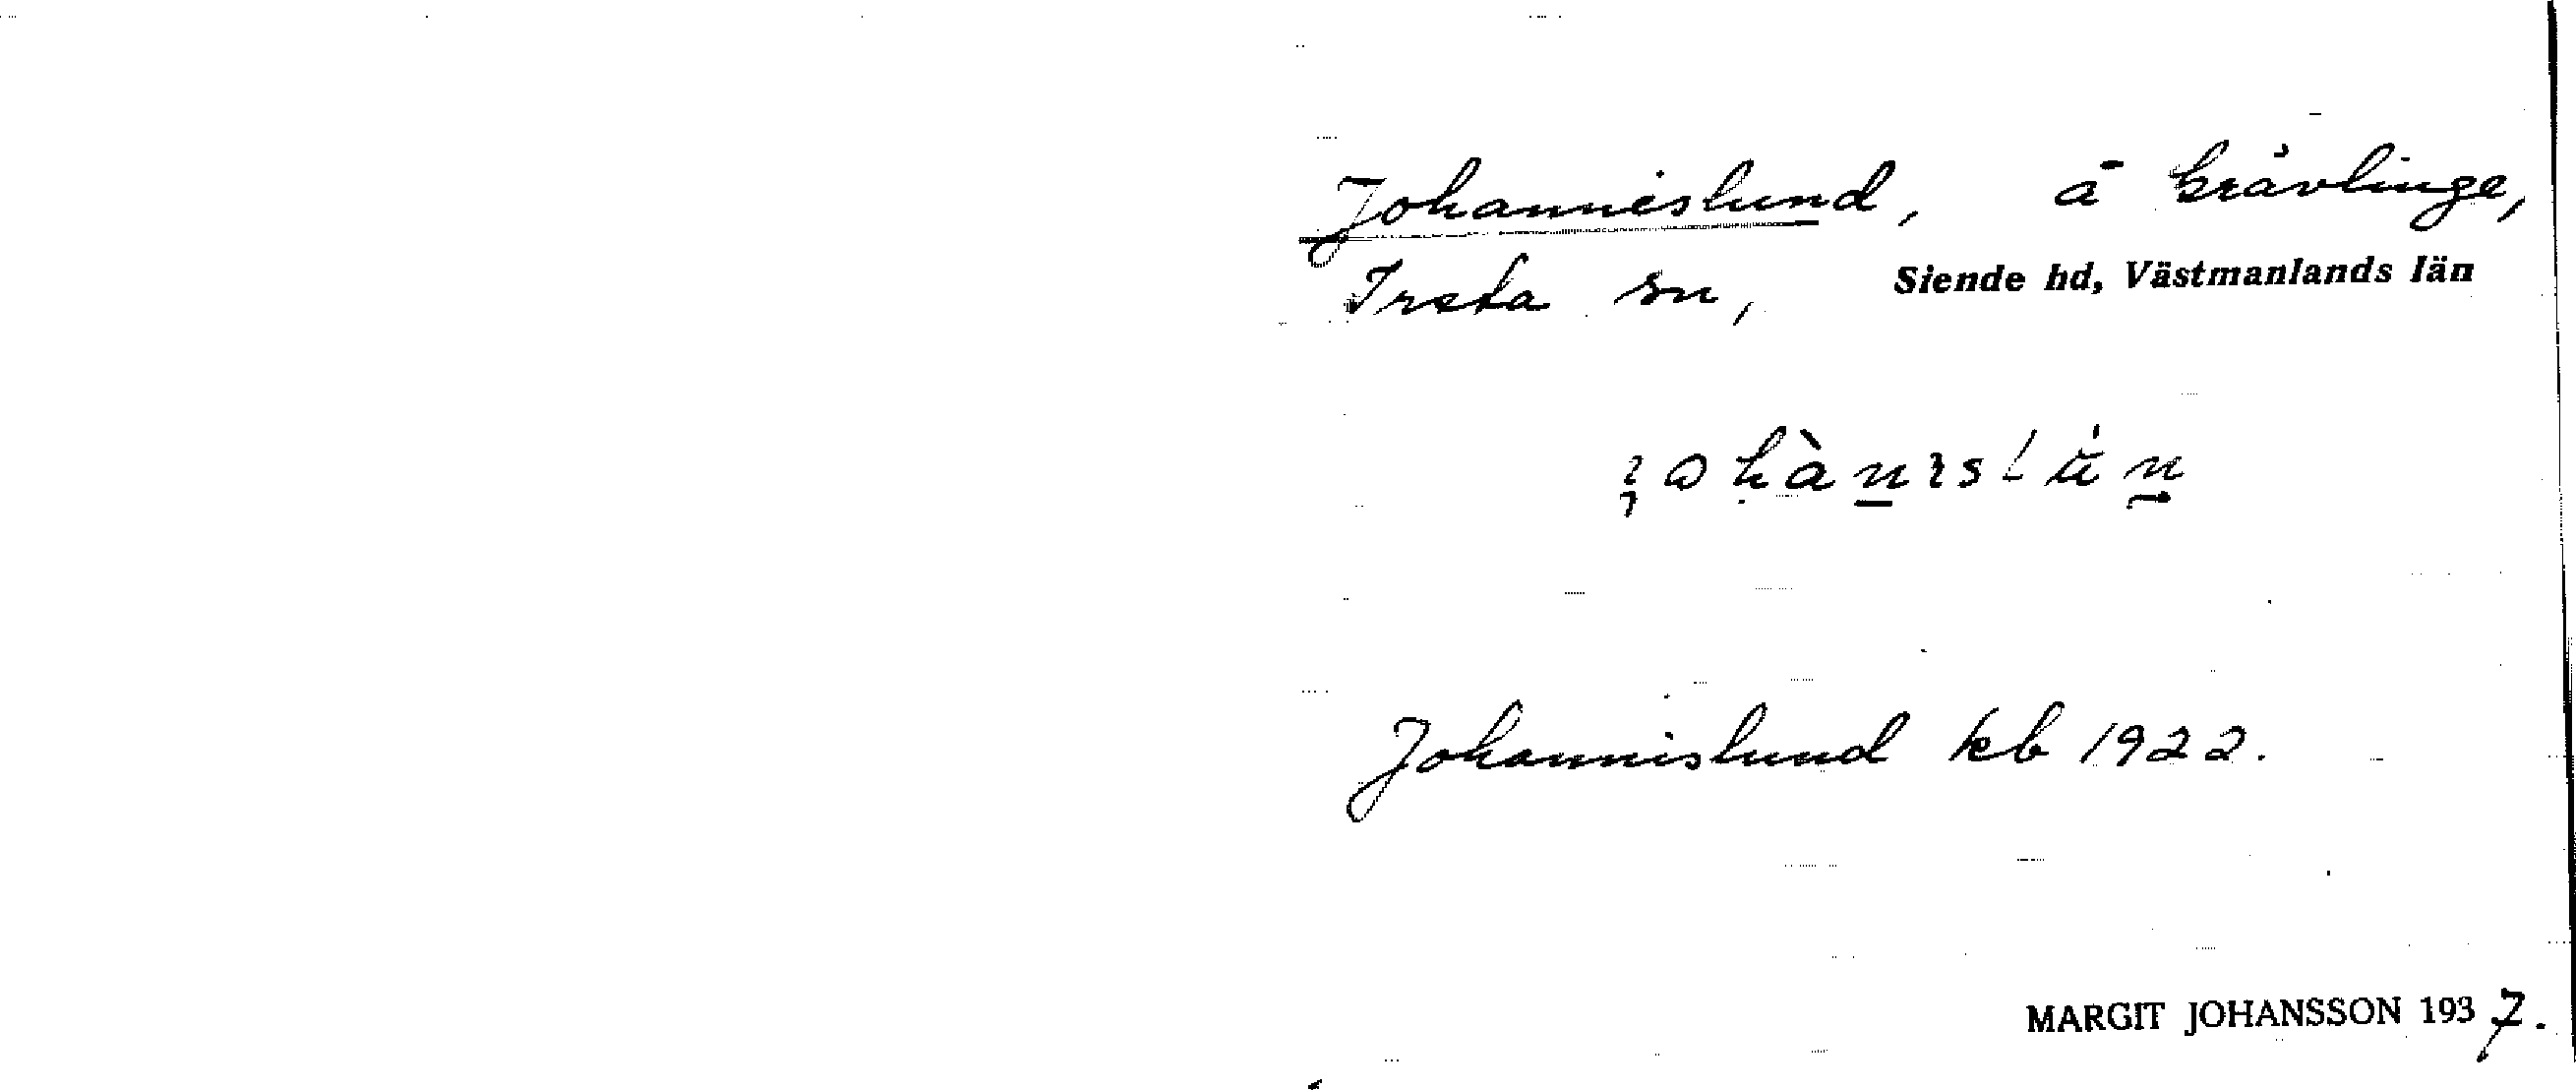 Johanneslund, å Brävlinge,
Irsta sn, Siende hd, Västmanlands län
Johannislund kb 1922.
MARGIT JOHANSSON 1937.